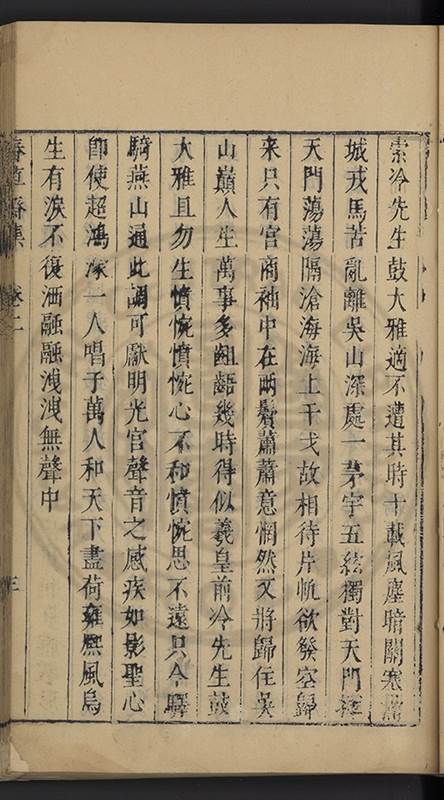 索冷先生鼓大雅適不遭其時十載風塵暗關塞
城戎馬苦亂離吳山深處一茅宇五絃獨對天門
天門蕩蕩隔滄海海上干戈故相待片帆欲發空歸
來只有宮商袖中在兩鬢蕭蕭意惘然又將歸住吳
山巔人生萬事多齟齬幾時得似羲皇前冷先生鼓
大雅且勿生憤惋憤惋心不和憤惋思不遠只今驛
騎燕山通此調可獻明光宮聲音之感疾如影聖心
即使超鴻濛一人唱予萬人和天下盡荷雍熙風烏
生有淚不復洒融融洩洩無聲中
集 卷二 三